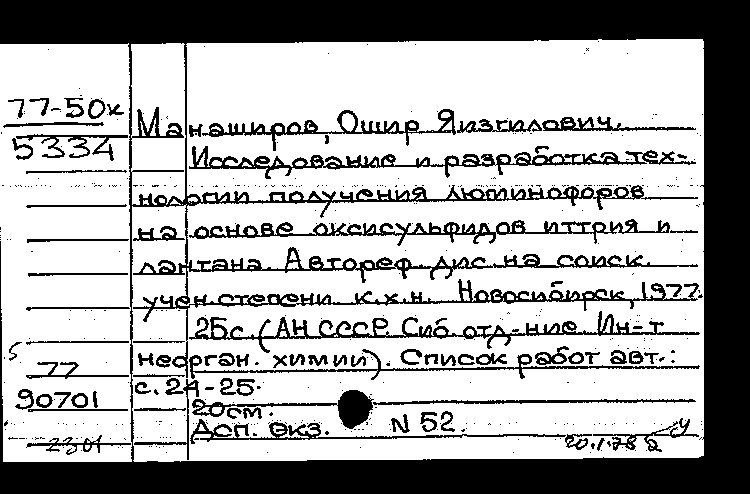 77-50к
5334
Манаширов, Ошир Яизгилович.
Исследование и разработка тех-
нологии получения люминофоров
на основе оксисульфидов иттрия и
лантана. Автореф. дис. на соиск.
учен. степени к.х.н. Новосибирск, 1977.
25с. (АН СССР. Сиб. отд-ние. Ин-т
неорган. химии). Список работ авт.:
с. 24-25.
20см.
Доп. экз. N 52.
5
77
90701
2301
20.1.78